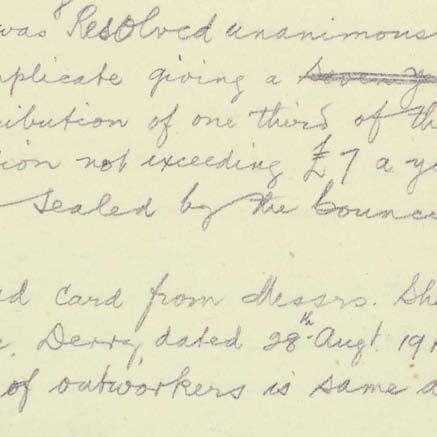 was Resolved unanimous
plicate giving a seven y
ribution of one third of th
tion not exceeding £7 a ye
sealed by the Counc
d card from Messrs. Sh
Derry, dated 28th Augt. 191
of outworkers is same a